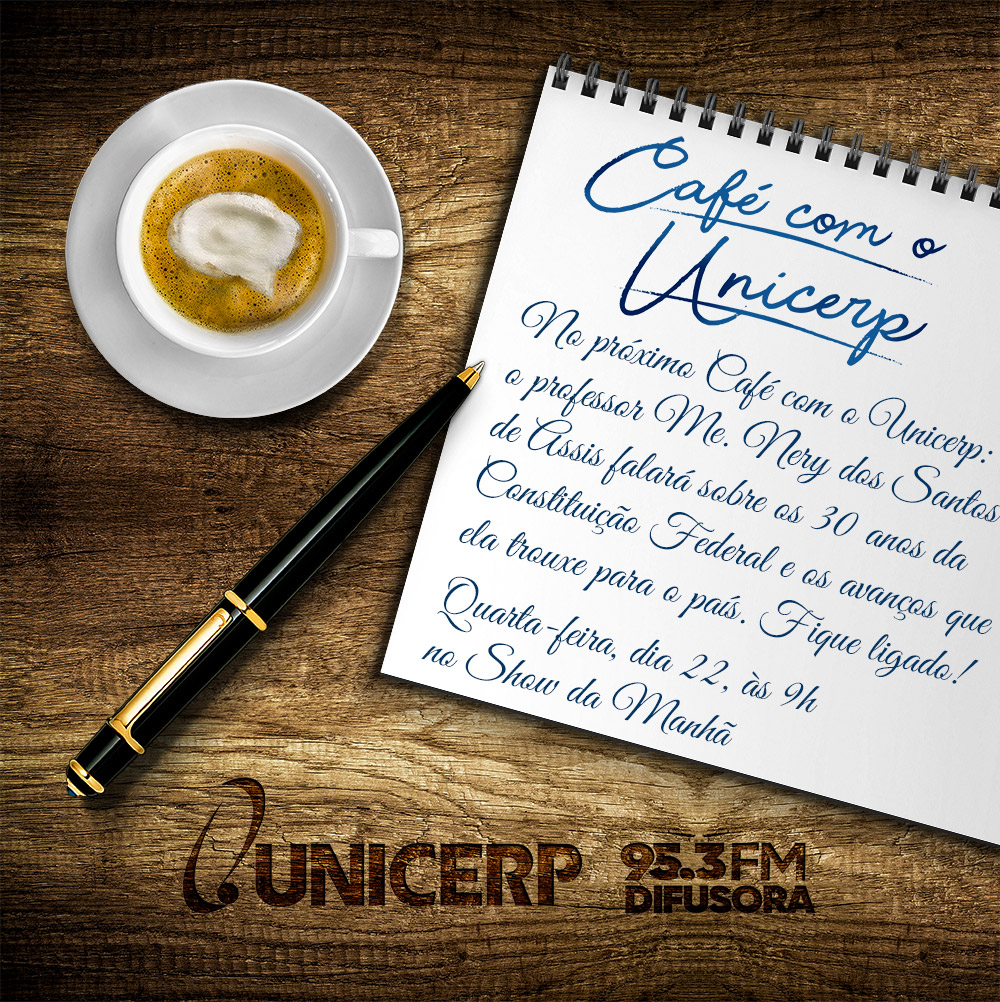 Café com o
Unicerp
No próximo Café com o Unicerp:
o professor Me. Nery dos Santos
de Assis falará sobre os 30 anos da
Constituição Federal e os avanços que
ela trouxe para o país. Fique ligado!
Quarta-feira, dia 22, às 9h
no Show da Manhã
UNICERP
95.3 FM
DIFUSORA